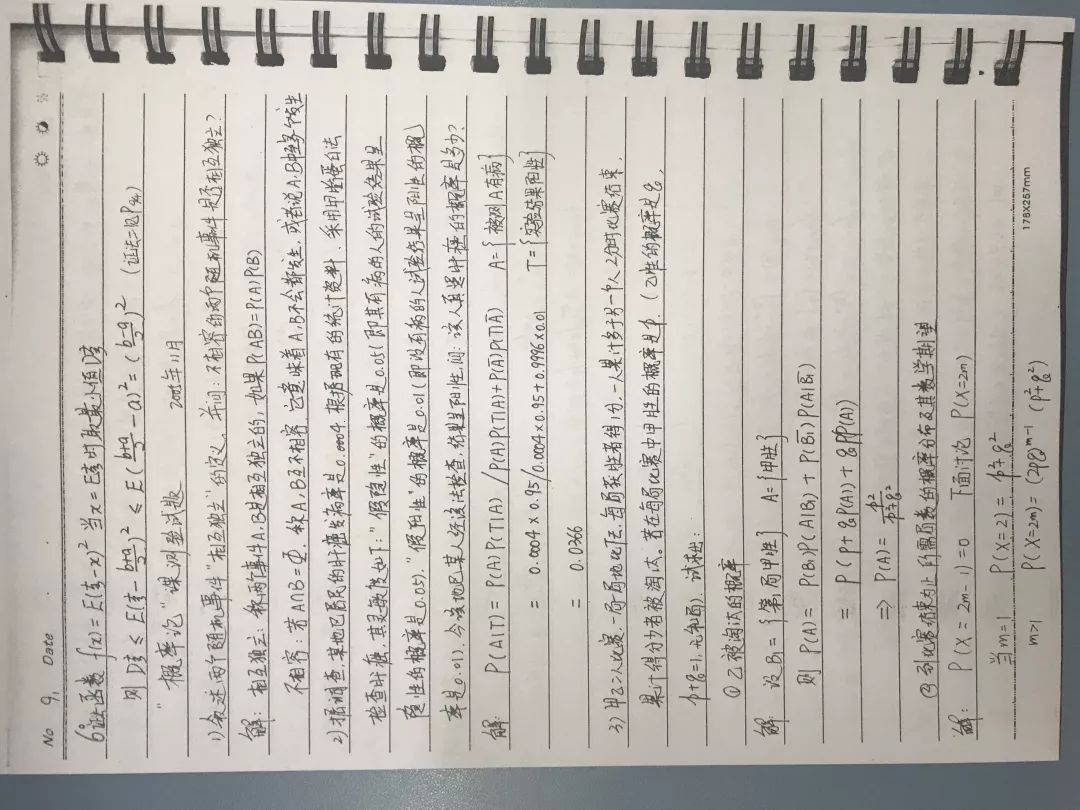 No 9, Date
6° 证函数 f(x) = E(ξ-x)² 当 x = Eξ 时取最小值 Dξ
则 Dξ ≤ E(ξ - (b+a)/2)² ≤ E((b+a)/2 - a)² = ((b-a)/2)² (证法二见P
"概率论" 课测验试题 2005年11月
1) 叙述两个随机事件"相互独立"的定义, 并问: 不相容的两个随机事件是否相互独立?
解: 相互独立: 称两个事件A,B是相互独立的, 如果 P(AB)=P(A)P(B)
不相容: 若A∩B=Φ, 称A,B互不相容, 它意味着A,B不会都发生, 或者说A,B中至多一个发生
2) 据调查, 某地区居民的肝癌发病率是0.0004 根据现有的统计资料, 采用甲胎蛋白法
检查肝癌, 其灵敏度如下: "假隐性"的概率是0.05(即真有病的人的试验结果呈
隐性的概率是0.05), "假阳性"的概率是0.01(即没有病的人试验结果呈阳性的概
率是0.01). 今该地区某人经该法检查, 结果呈阳性, 问: 该人真患肝癌的概率是多少?
解: P(A|T) = P(A)P(T|A) / P(A)P(T|A)+P(Ā)P(T|Ā) A={被测A有病}
= 0.0004 × 0.95 / 0.0004×0.95+0.9996×0.01 T={实验结果阳性}
= 0.0366
3) 甲乙二人比赛, 一局一局地比下去, 每局获胜者得1分, 一人累计多于另一个人2分时比赛结束,
累计得分少者被淘汰. 若在每局比赛中甲胜的概率是p, (乙胜的概率是q,
p+q=1, 无和局). 试求:
① 乙被淘汰的概率
解: 设B₁={第1局甲胜} A={甲胜}
则 P(A) = P(B₁)P(A|B₁) + P(B̄₁)P(A|B̄₁)
= P(p+qP(A)) + qpP(A)
⇒ P(A) = p²/(p²+q²)
② 到比赛结束为止所需局数的概率分布及其数学期望
解: P(X=2m-1)=0 下面讨论 P(X=2m)
当m=1 P(X=2) = p²+q²
m>1 P(X=2m) = (2pq)^(m-1) (p²+q²)
178X257mm